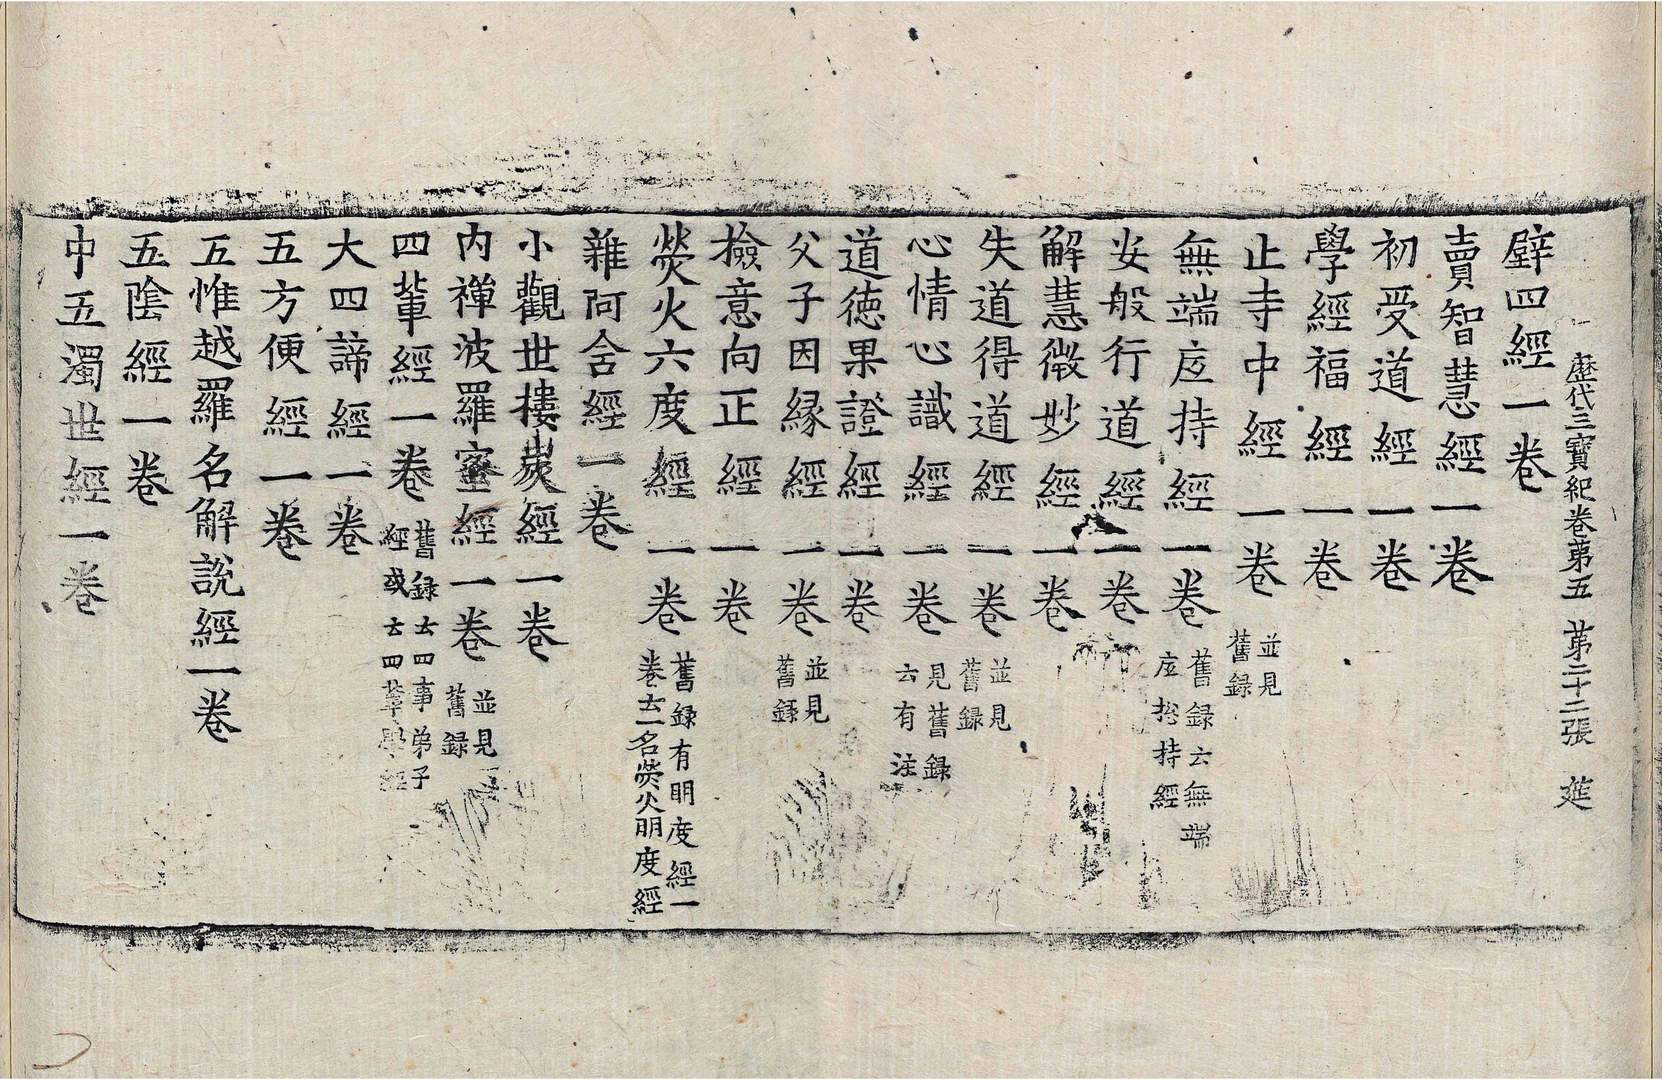 歷代三寶紀卷第五 第二十二張 莚
壁四經一卷
賣智慧經一卷
初受道經一卷
學經福經一卷
止寺中經一卷 並見舊録
無端底持經一卷 舊録云無端底捴持經
安般行道經一卷
解慧微妙經一卷
失道得道經一卷 並見舊録
心情心識經一卷 見舊録云有注
道德果證經一卷
父子因緣經一卷 並見舊録
撿意向正經一卷
熒火六度經一卷 舊録有明度經一卷云一名熒火明度經
雜阿含經一卷
小觀世樓炭經一卷
内禪波羅蜜經一卷 並見舊録
四輩經一卷 舊録云四事弟子經或云四輩學經
大四諦經一卷
五方便經一卷
五惟越羅名解説經一卷
五陰經一卷
中五濁世經一卷